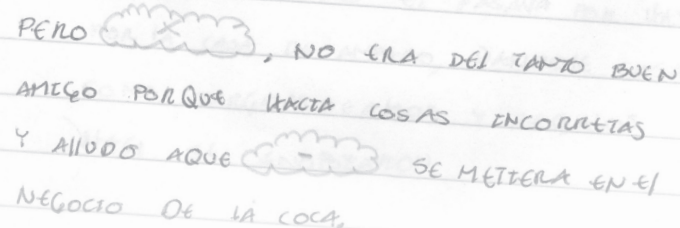 PERO X, NO ERA DEL TANTO BUEN
AMIGO PORQUE HACIA COSAS INCORRETAS
Y AlluDO AQUE - SE METIERA EN El
NEGOCIO DE LA COCA.